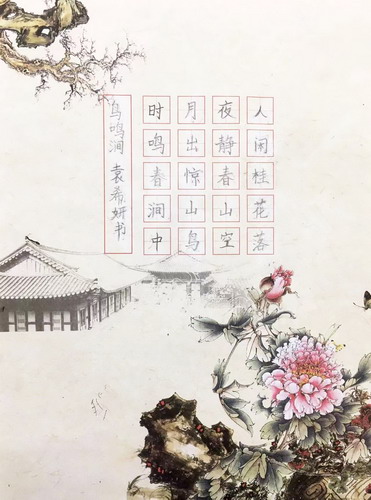 人闲桂花落
夜静春山空
月出惊山鸟
时鸣春涧中
鸟鸣涧 袁希妍书